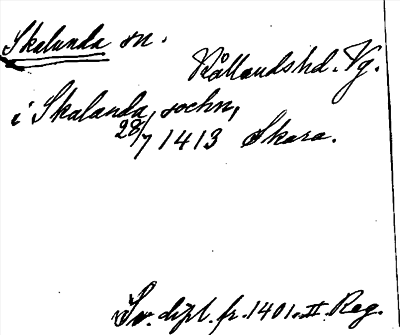 Skalunda sn.
Kållands hd. Vg.
i Skalanda, sochn,
28/7 1413 Skara.
Sv. dipl. fr. 1401. II. Reg.